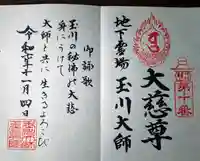 第十番
大慈尊
地下霊場 玉川大師
御詠歌
玉川の秘佛の大慈
身にうけて
大師と共に生きるよろこび
令和 十一月四日